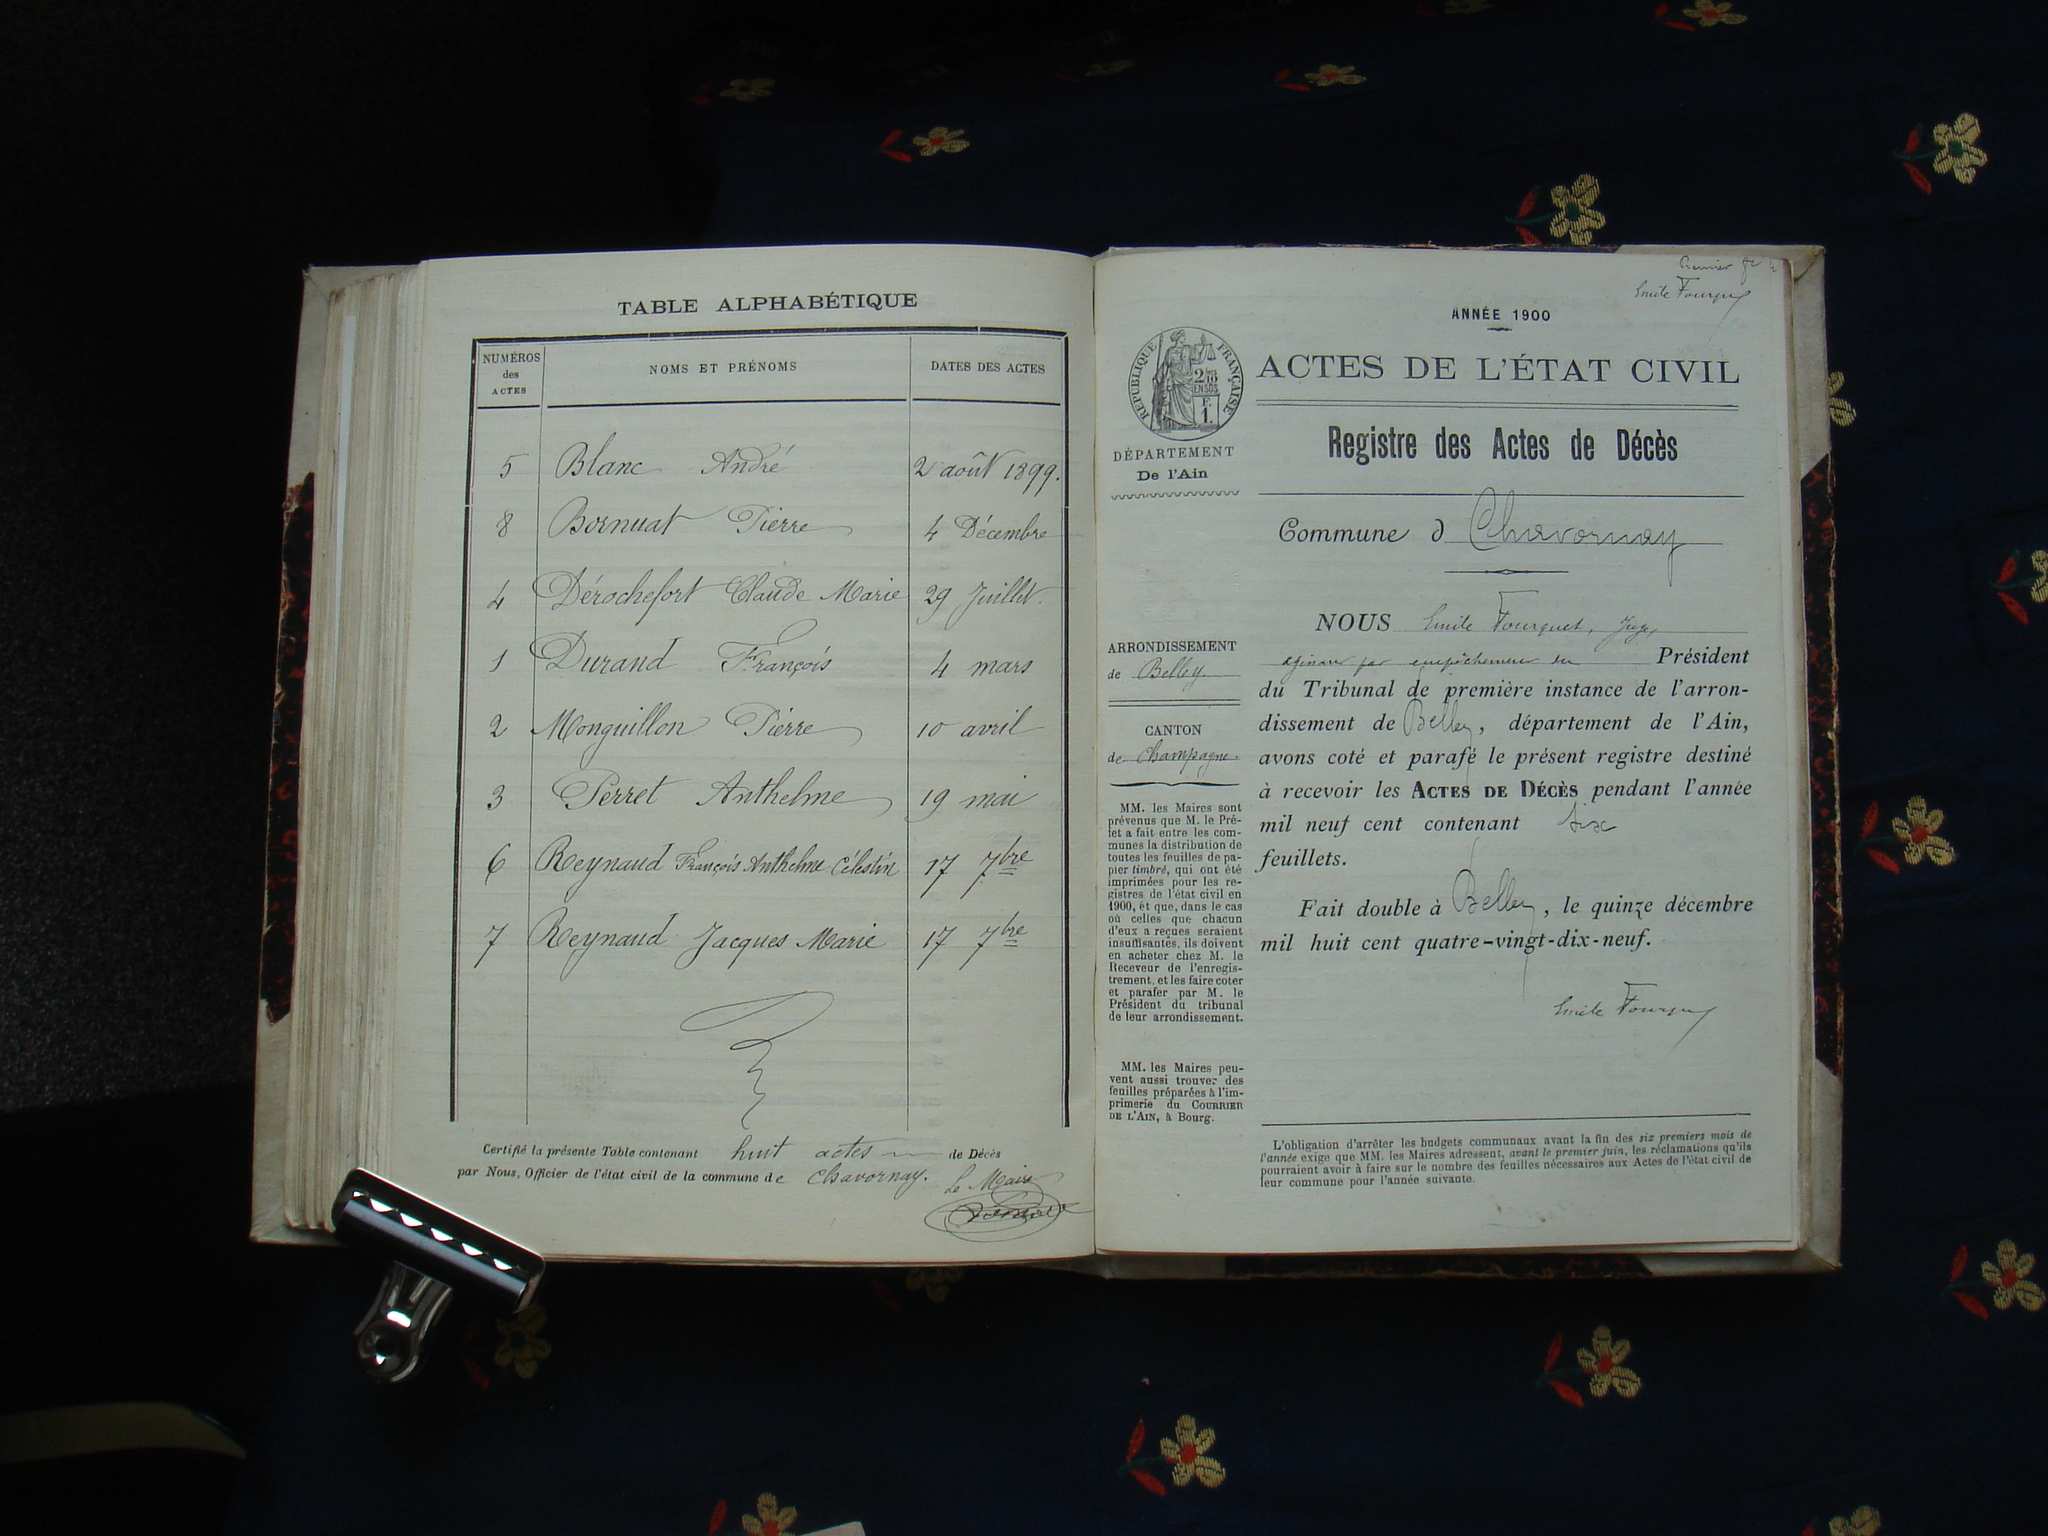 TABLE ALPHABÉTIQUE
NUMÉROS des ACTES
NOMS ET PRÉNOMS
DATES DES ACTES
5 Blanc André 2 août 1899.
8 Bornuat Pierre 4 Décembre
4 Dérochefort Claude Marie 29 Juillet.
1 Durand François 4 mars
2 Monguillon Pierre 10 avril
3 Perret Anthelme 19 mai
6 Reynaud François Anthelme Célestin 17 7bre
7 Reynaud Jacques Marie 17 7bre
Certifié la présente Table contenant huit actes de Décès
par Nous, Officier de l'état civil de la commune de Chavornay.
Le Maire
Premier
Emile Fourquet
ANNÉE 1900
RÉPUBLIQUE FRANÇAISE
2/10 EN SUS
F. 1.
ACTES DE L'ÉTAT CIVIL
DÉPARTEMENT
De l'Ain
Registre des Actes de Décès
Commune d Chavornay
ARRONDISSEMENT
de Belley
CANTON
de Champagne
MM. les Maires sont
prévenus que M. le Pré-
fet a fait entre les com-
munes la distribution de
toutes les feuilles de pa-
pier timbré, qui ont été
imprimées pour les re-
gistres de l'état civil en
1900, et que, dans le cas
où celles que chacun
d'eux a reçues seraient
insuffisantes, ils doivent
en acheter chez M. le
Receveur de l'enregis-
trement, et les faire coter
et parafer par M. le
Président du tribunal
de leur arrondissement.
MM. les Maires peu-
vent aussi trouver des
feuilles préparées à l'im-
primerie du COURRIER
DE L'AIN, à Bourg.
NOUS Emile Fourquet, Juge,
par empêchement du Président
du Tribunal de première instance de l'arron-
dissement de Belley, département de l'Ain,
avons coté et parafé le présent registre destiné
à recevoir les ACTES DE DÉCÈS pendant l'année
mil neuf cent contenant six
feuillets.
Fait double à Belley, le quinze décembre
mil huit cent quatre-vingt-dix-neuf.
Emile Fourquet
L'obligation d'arrêter les budgets communaux avant la fin des six premiers mois de
l'année exige que MM. les Maires adressent, avant le premier juin, les réclamations qu'ils
pourraient avoir à faire sur le nombre des feuilles nécessaires aux Actes de l'état civil de
leur commune pour l'année suivante.